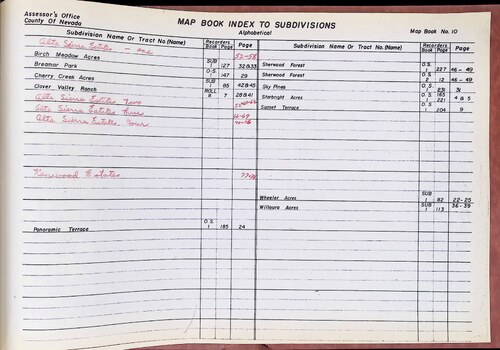 Assessor's Office
County Of Nevada
MAP BOOK INDEX TO SUBDIVISIONS
Alphabetical
Map Book No. 10
Subdivision Name Or Tract No. (Name)
Recorders
Book Page
Page
Subdivision Name Or Tract No. (Name)
Recorders
Book Page
Page
Alta Sierra Estates - one 52-58
Birch Meadow Acres SUB 1 127 32&33
Breamar Park O.S. 1 147 29
Cherry Creek Acres SUB 1 85 42&45
Clover Valley Ranch ROLL 7 28&41
Alta Sierra Estates Two
Alta Sierra Estates Three
Alta Sierra Estates Four
Kenwood Estates
Panoramic Terrace O.S. 1 185 24
Sherwood Forest O.S. 1 227 46-49
Sherwood Forest O.S. 2 12 46-49
Sky Pines O.S. 1 231 31
Starbright Acres O.S. 165 1 221 4 & 5
Sunset Terrace O.S. 1 204 9
Wheeler Acres SUB 1 82 22-25
Willaura Acres SUB 1 113 36-39